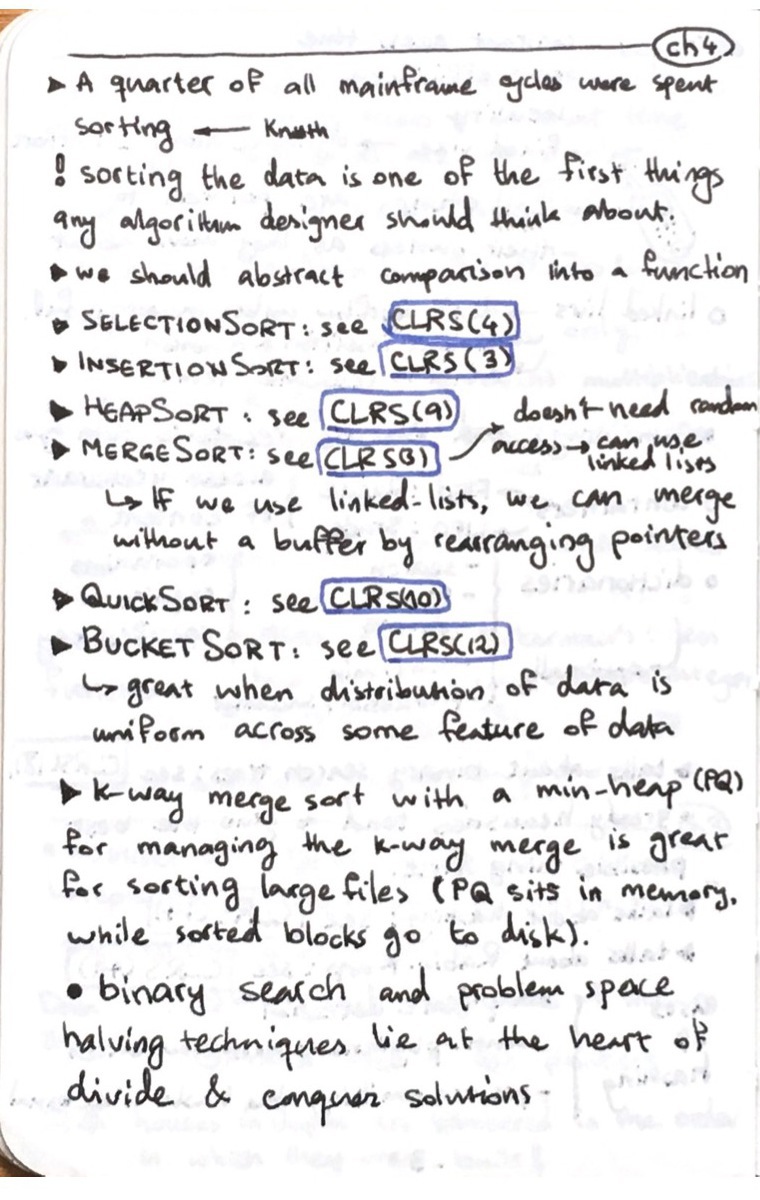 ch4
▸ A quarter of all mainframe cycles were spent
sorting ← Knuth
! sorting the data is one of the first things
any algorithm designer should think about.
▸ we should abstract comparison into a function
▸ SELECTIONSORT: see CLRS(4)
▸ INSERTIONSORT: see CLRS(3)
▸ HEAPSORT: see CLRS(9)
▸ MERGESORT: see CLRS(3)
doesn't need random
access → can use
linked lists
↳ If we use linked-lists, we can merge
without a buffer by rearranging pointers
▸ QUICKSORT: see CLRS(10)
▸ BUCKETSORT: see CLRS(12)
↳ great when distribution of data is
uniform across some feature of data
▸ K-way merge sort with a min-heap (PQ)
for managing the k-way merge is great
for sorting large files (PQ sits in memory,
while sorted blocks go to disk).
• binary search and problem space
halving techniques lie at the heart of
divide & conquer solutions